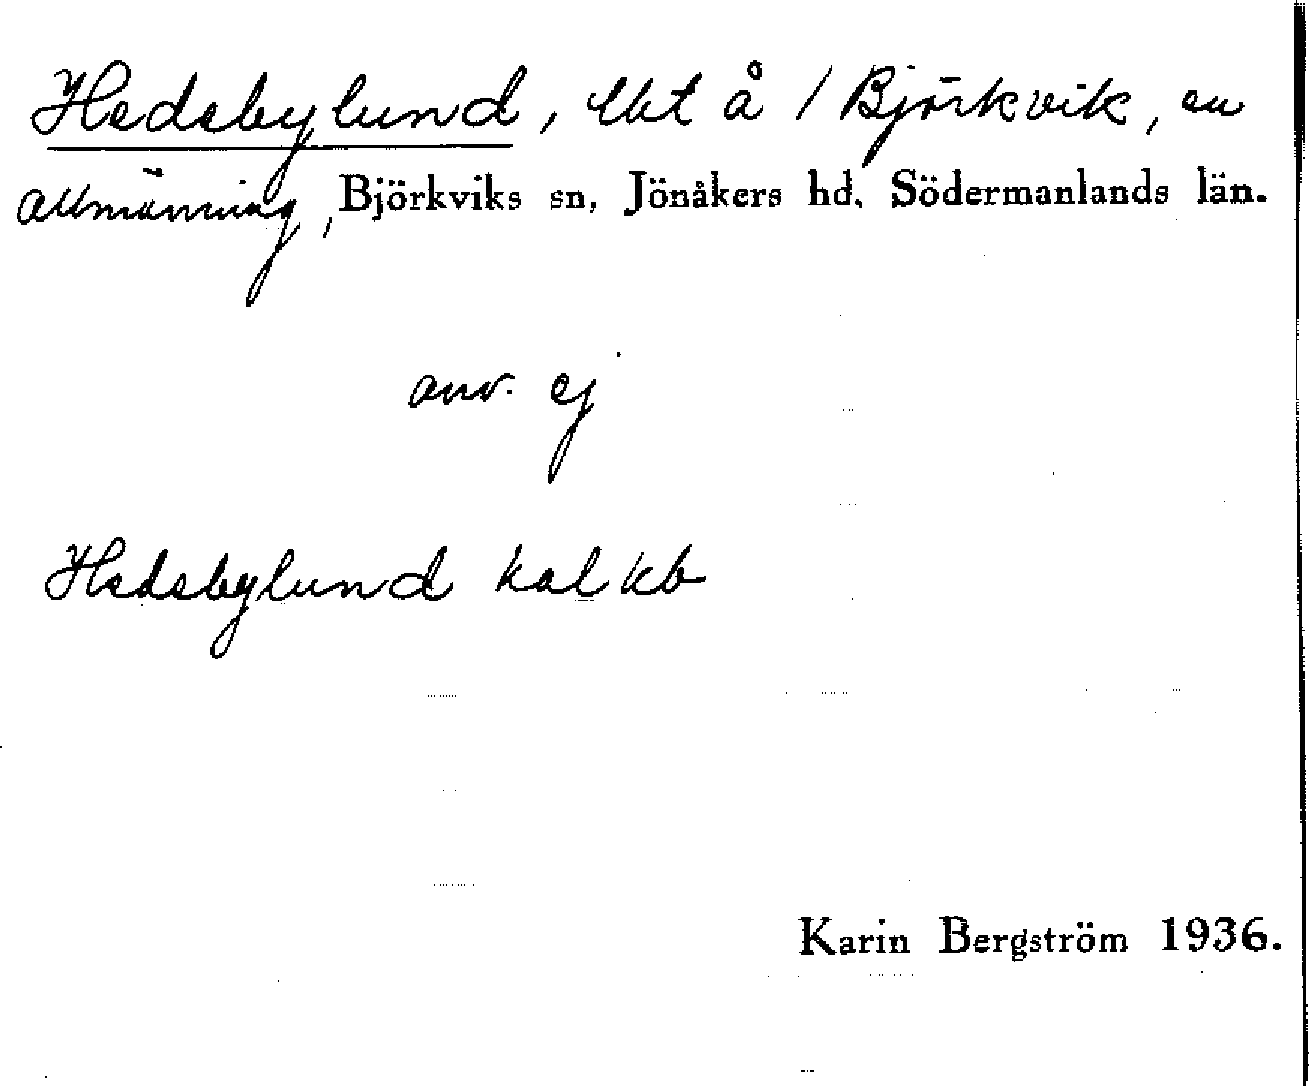 Hedebylund, lht å / Björkvik, en
allmänning, Björkviks sn, Jönåkers hd, Södermanlands län.
anv. ej
Hedebylund kal kb
Karin Bergström 1936.